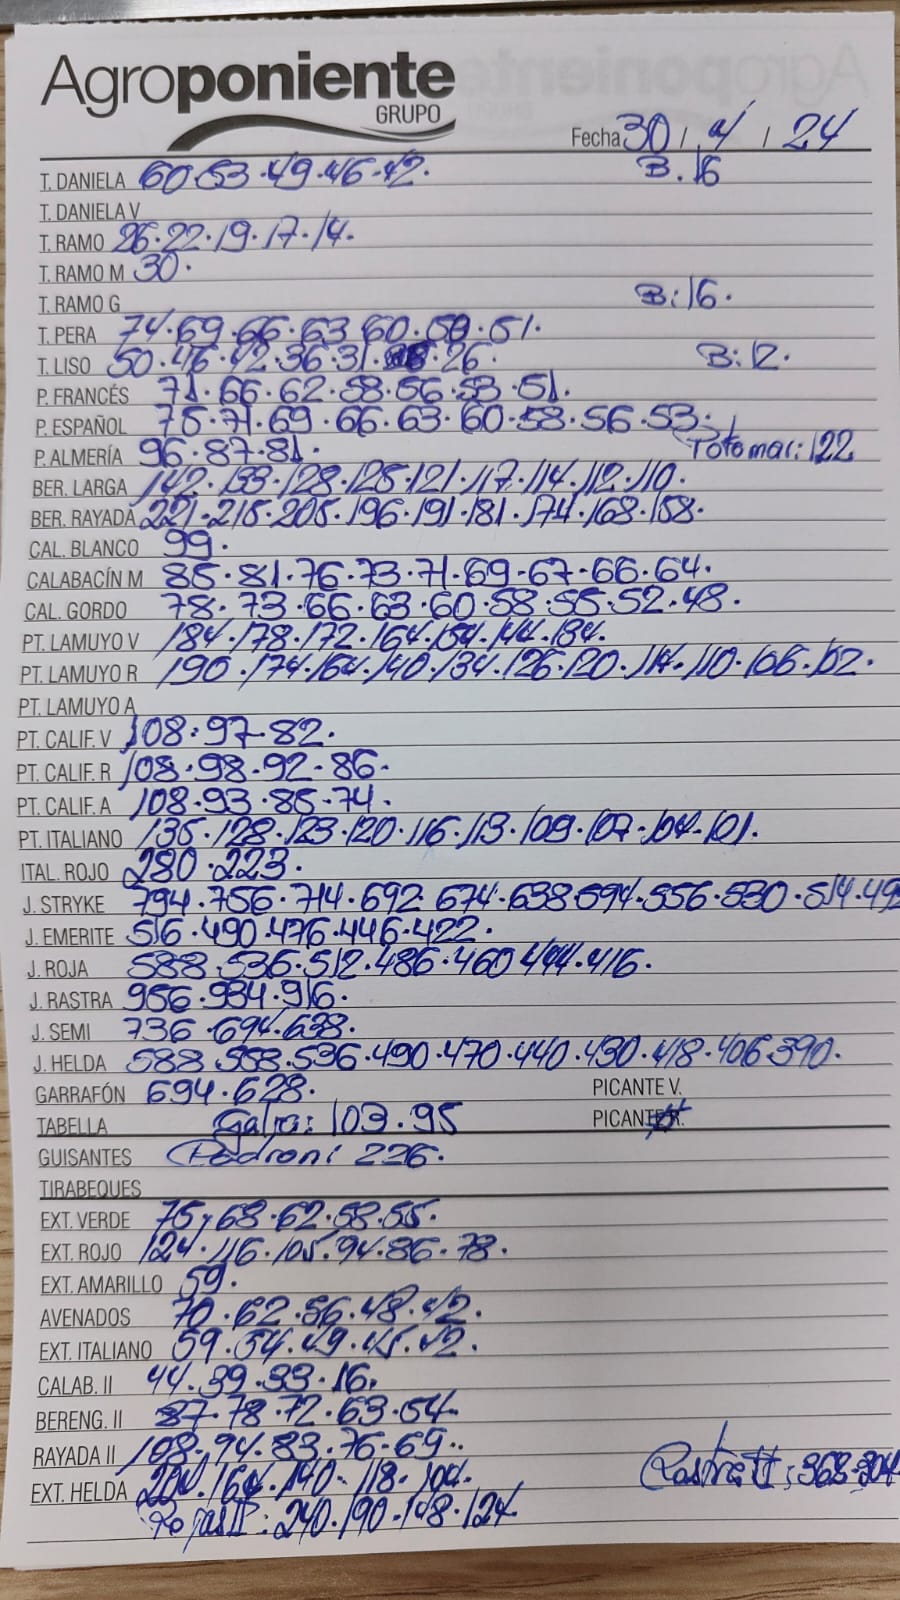 Agroponiente
GRUPO
Fecha 30 / 4 / 24
T. DANIELA 60.53.49.46.42. B. 16
T. DANIELA V
T. RAMO 26.22.19.17.14.
T. RAMO M 30.
T. RAMO G B: 16.
T. PERA 74.69.66.63.60.50.51.
T. LISO 50.46.42.36.31. .26. B: 12.
P. FRANCÉS 71.66.62.58.56.53.51.
P. ESPAÑOL 75.71.69.66.63.60.58.56.53.
P. ALMERÍA 96.87.81. Potomac: 122
BER. LARGA 142.133.128.125.121.117.114.112.110.
BER. RAYADA 221.215.205.196.191.181.174.168.158.
CAL. BLANCO 99.
CALABACÍN M 85.81.76.73.71.69.67.66.64.
CAL. GORDO 78.73.66.63.60.58.55.52.48.
PT. LAMUYO V 184.178.172.164.154.144.134.
PT. LAMUYO R 190.174.164.140.134.126.120.114.110.106.102.
PT. LAMUYO A
PT. CALIF. V 108.97.82.
PT. CALIF. R 108.98.92.86.
PT. CALIF. A 108.93.85.74.
PT. ITALIANO 135.128.123.120.116.113.109.107.104.101.
ITAL. ROJO 280.223.
J. STRYKE 794.756.714.692.674.638.594.556.530.514.49
J. EMERITE 516.490.476.446.422.
J. ROJA 588.536.512.486.460.444.416.
J. RASTRA 956.934.916.
J. SEMI 736.694.638.
J. HELDA 588.558.536.490.470.440.430.418.406.390.
GARRAFÓN 694.628. PICANTE V.
TABELLA Galia: 103.95 PICANTE R.
GUISANTES Padron: 226.
TIRABEQUES
EXT. VERDE 75.68.62.58.55.
EXT. ROJO 124.116.105.94.86.78.
EXT. AMARILLO 59.
AVENADOS 70.62.56.48.42.
EXT. ITALIANO 59.54.49.45.42.
CALAB. II 44.39.33.16.
BERENG. II 87.78.72.63.54.
RAYADA II 108.94.83.76.69.
EXT. HELDA 204.164.140.118.104. Rastra II: 368.304
Rojas II: 240.190.148.124.